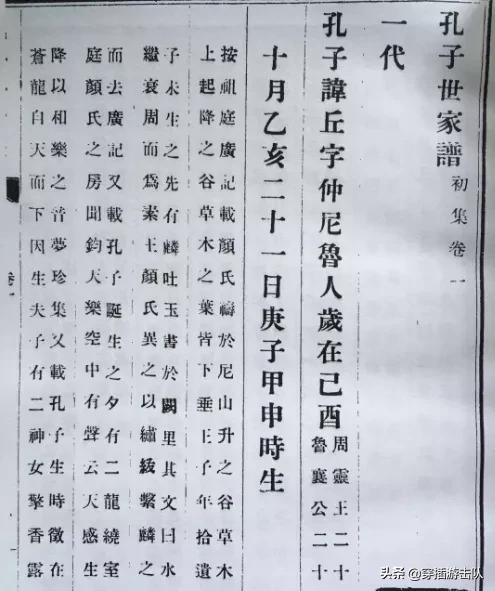 孔子世家譜 初集卷一
一代
孔子諱丘字仲尼魯人歲在己酉 周靈王二十
魯襄公二十
十月乙亥二十一日庚子甲申時生
按祖庭廣記載顏氏禱於尼山升之谷草木
上起降之谷草木之葉皆下垂王子年拾遺
子未生之先有麟吐玉書於闕里其文曰水
繼衰周而爲素王顏氏異之以繡紱繫麟之
而去廣記又載孔子誕生之夕有二龍繞室
庭顏氏之房聞鈞天樂空中有聲云天感生
降以和樂之音夢珍集又載孔子生時徵在
蒼龍自天而下因生夫子有二神女擎香露
头条 @穿插游击队